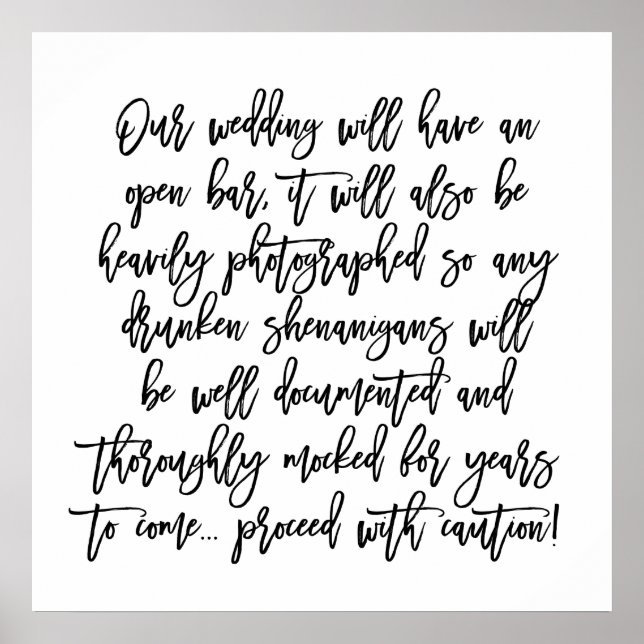 Our wedding will have an
open bar, it will also be
heavily photographed so any
drunken shenanigans will
be well documented and
thoroughly mocked for years
to come... proceed with caution!